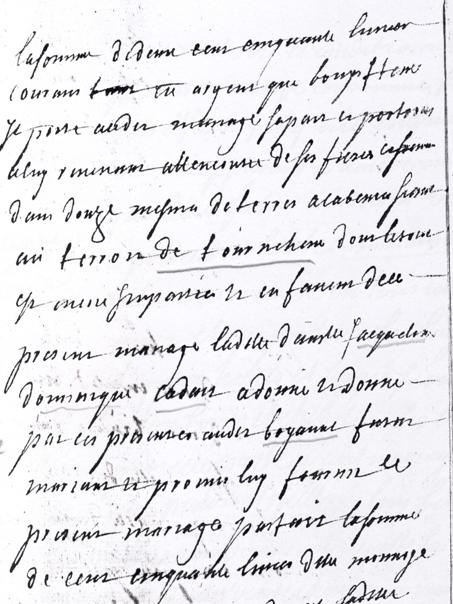 la somme de deux cent cinquante livres
courans en argent que
Je porte audit mariage sa part et portion
a luy revenant allencontre de ses freres et soeurs
dans douze mesures de terres a labeur
au terroir de tournehem
et encore et en faveur de ce
present mariage ladite damlle Jacqueline
dominique cadart a donné et donne
par ces presentes audit boyaval futur
mariant et promis luy fournir le
present mariage parfait la somme
de cent cinquante livres dite monnoye
ladite